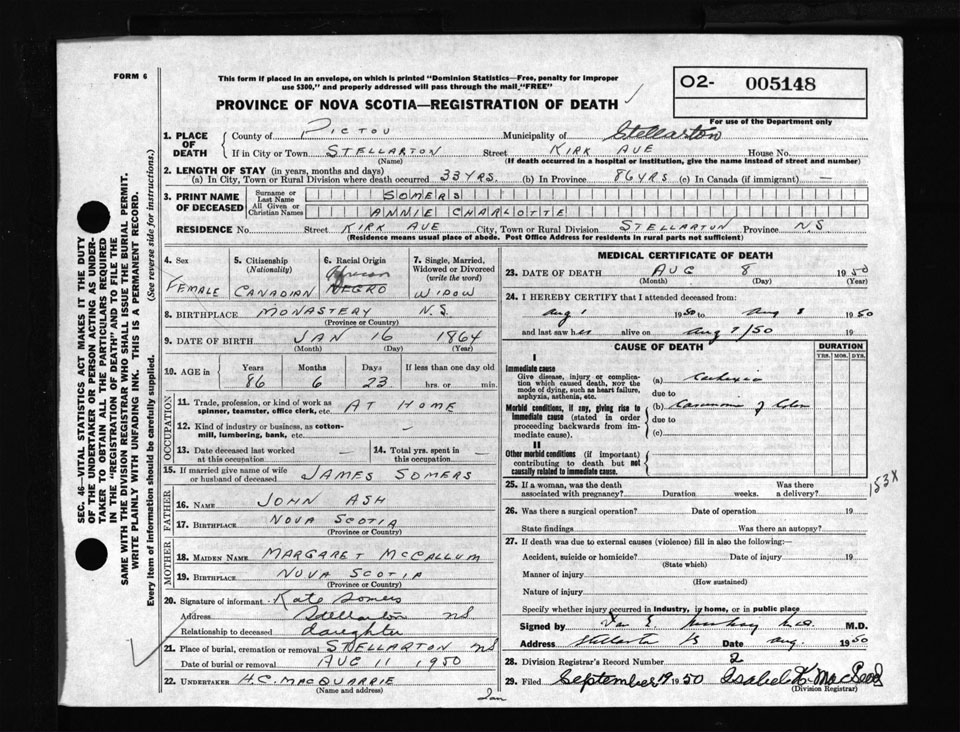 FORM 6
This form if placed in an envelope, on which is printed "Dominion Statistics—Free, penalty for improper
use $300," and properly addressed will pass through the mail "FREE"
O2- 005148
For use of the Department only
PROVINCE OF NOVA SCOTIA—REGISTRATION OF DEATH
1. PLACE OF DEATH County of PICTOU Municipality of Stellarton
If in City or Town STELLARTON Street KIRK AVE House No.
(Name) (If death occurred in a hospital or institution, give the name instead of street and number)
2. LENGTH OF STAY (in years, months and days)
(a) In City, Town or Rural Division where death occurred 33 YRS. (b) In Province 86 YRS (c) In Canada (if immigrant) —
3. PRINT NAME OF DECEASED Surname or Last Name SOMERS
All Given or Christian Names ANNIE CHARLOTTE
RESIDENCE No. Street KIRK AVE City, Town or Rural Division STELLARTON Province N.S
(Residence means usual place of abode. Post Office Address for residents in rural parts not sufficient)
4. Sex FEMALE
5. Citizenship (Nationality) CANADIAN
6. Racial Origin African NEGRO
7. Single, Married, Widowed or Divorced (write the word) WIDOW
8. BIRTHPLACE MONASTERY N.S.
(Province or Country)
9. DATE OF BIRTH JAN 16 1864
(Month) (Day) (Year)
10. AGE in Years 86 Months 6 Days 23 If less than one day old hrs. or min.
OCCUPATION
11. Trade, profession, or kind of work as spinner, teamster, office clerk, etc. AT HOME
12. Kind of industry or business, as cotton-mill, lumbering, bank, etc. —
13. Date deceased last worked at this occupation —
14. Total yrs. spent in this occupation —
15. If married give name of wife or husband of deceased JAMES SOMERS
FATHER
16. NAME JOHN ASH
17. BIRTHPLACE NOVA SCOTIA
(Province or Country)
MOTHER
18. MAIDEN NAME MARGARET MCCALLUM
19. BIRTHPLACE NOVA SCOTIA
(Province or Country)
20. Signature of informant Kate Somers
Address Stellarton NS
Relationship to deceased daughter
21. Place of burial, cremation or removal STELLARTON NS
Date of burial or removal AUG 11 1950
22. UNDERTAKER H.C. MACQUARRIE
(Name and address)
MEDICAL CERTIFICATE OF DEATH
23. DATE OF DEATH AUG 8 1950
(Month) (Day) (Year)
24. I HEREBY CERTIFY that I attended deceased from:
Aug 1 1950 to Aug 8 1950
and last saw her alive on Aug 7/50 19
CAUSE OF DEATH
DURATION
YRS. MOS. DYS.
I
Immediate cause
Give disease, injury or complication which caused death, NOT the mode of dying, such as heart failure, asphyxia, asthenia, etc.
(a) Cachexia
due to
Morbid conditions, if any, giving rise to immediate cause (stated in order proceeding backwards from immediate cause).
(b) Carcinoma of Colon
due to
(c)
II
Other morbid conditions (if important) contributing to death but not causally related to immediate cause.
25. If a woman, was the death associated with pregnancy? Duration weeks. Was there a delivery?
153X
26. Was there a surgical operation? Date of operation 19
State findings Was there an autopsy?
27. If death was due to external causes (violence) fill in also the following:—
Accident, suicide or homicide? Date of injury 19
(State which)
Manner of injury
(How sustained)
Nature of injury
Specify whether injury occurred in Industry, in home, or in public place
Signed by M.D.
Address Stellarton Date Aug. 1950
28. Division Registrar's Record Number 2
29. Filed September 19 1950 Isabel K. MacLeod
(Division Registrar)
SEC. 46—VITAL STATISTICS ACT MAKES IT THE DUTY
OF THE UNDERTAKER OR PERSON ACTING AS UNDER-
TAKER TO OBTAIN ALL THE PARTICULARS REQUIRED
IN THE "REGISTRATION OF DEATH" AND TO FILE THE
SAME WITH THE DIVISION REGISTRAR WHO SHALL ISSUE THE BURIAL PERMIT.
WRITE PLAINLY WITH UNFADING INK. THIS IS A PERMANENT RECORD.
Every item of information should be carefully supplied. (See reverse side for instructions.)